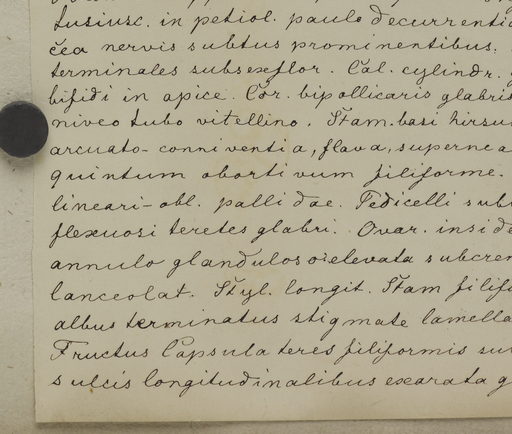 tusiusc. in petiol. paulo decurrentia
cea nervis subtus prominentibus.
terminales subsexflor. Cal. cylindr.
bifidi in apice. Cor. bipollicaris glabris
niveo tubo vitellino. Stam. basi hirsu
arcuato-conniventia, flava, superne a
quintum abortivum filiforme.
lineari-obl. pallidae. Pedicelli sub
flexuosi teretes glabri. Ovar. inside
annulo glanduloso elevata subcren
lanceolat. Styl. longit. Stam filif
albus terminatus stigmate lamella
Fructus Capsula teres filiformis su
sulcis longitudinalibus exarata g